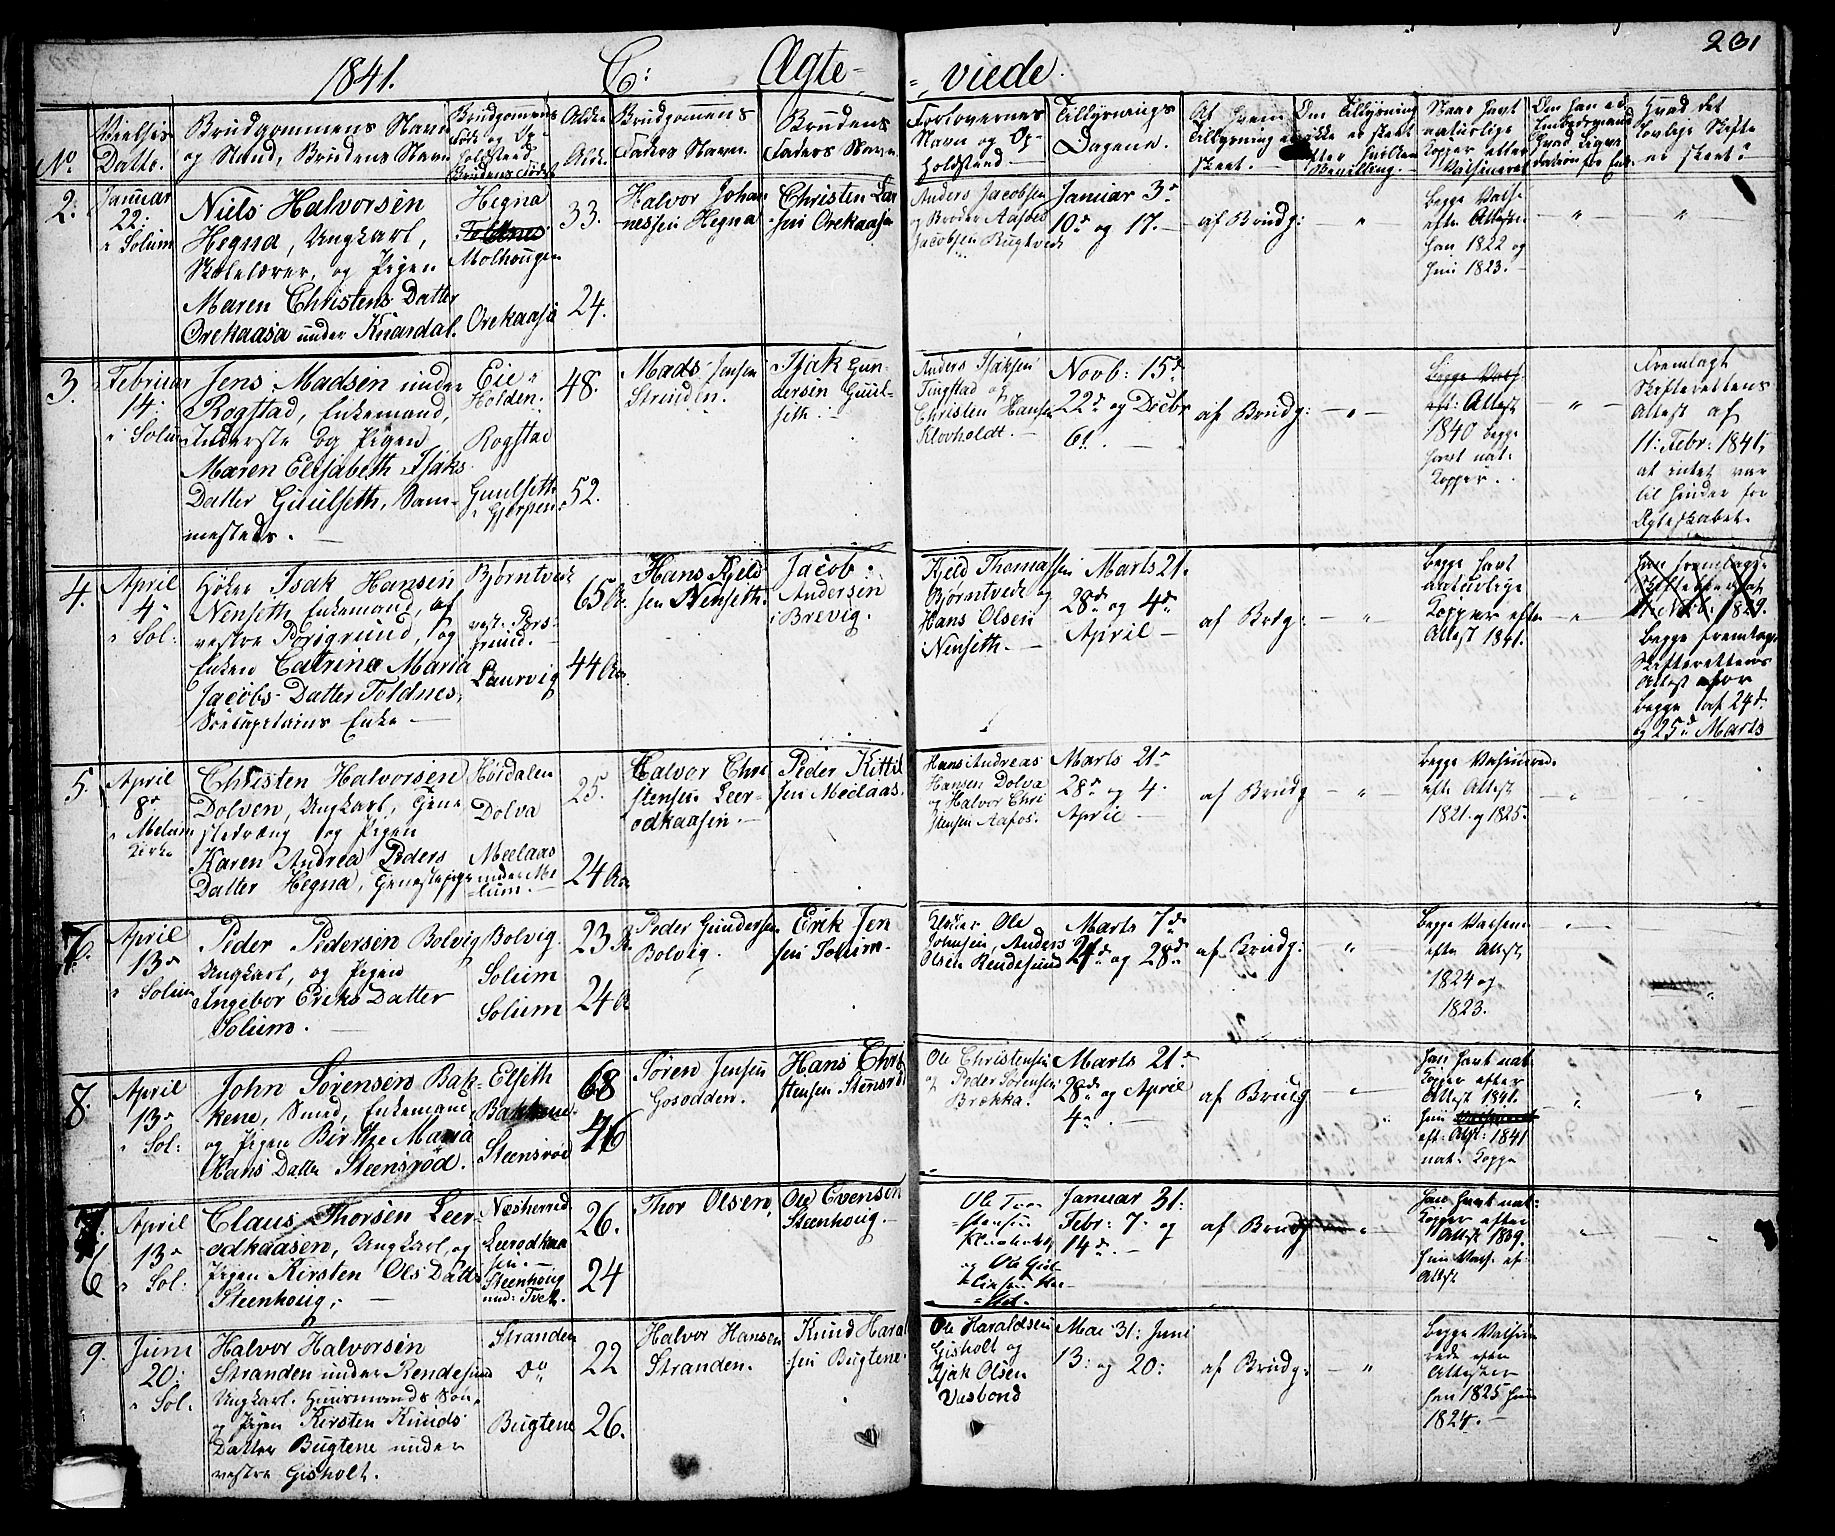 1841.
C: Ægte-
= viede.
231
No
Vielses
Datto.
Brudgommens Navn
og Stand, Brudens Navn
Brudgommens
Brudens
Alder
Alder.
Brudgomens
Faders Navn.
Brudens
Faders Navn.
Forlovernes
Navn og Op-
holdssted
Tillysnings
Dagene.
Af hvem
Tillysning er
skeet.
Om Tillysning
ikke er skeet
efter hvilken
Bevilling.
Naar havt
naturlige
Kopper eller
Vaksineret
Hvad det
er skeet?
2.
Januar
22:
i Solum
Niels Halvorsen
Hegna, Ungkarl,
Skolelærer, og Pigen
Maren Christens Datter
Orekaasa under Knardal.
Hegna
Toldnes
Molhougen
Orekaasa
33.
24.
Halvor Johan
nessen Hegna
Christen Lar
sen Orekaasa
Anders Jacobsen
og Broder Aasoed
Jacobsen Bugtved
Januar 3de
10de og 17.
af Brudg:
Begge Vaks.
efter Attester
han 1822 og
hun 1823.
3.
Februar
14:
i Solum
Jens Madsen under
Rogstad, Enkemand,
Inderste og Pigen
Maren Elisabeth Isaks
Datter Guulseth, Sam-
mesteds.
Eie i
Holden.
Rogstad
Guulseth
i Gjerpen
48.
52.
Mads Jensen
Strinden.
Isak Gun-
dersen Guul-
seth
Anders Isaksen
Tingstad og
Christen Hansen
Klovholdt.
Novb: 15de
22de og Decbr
6te
af Brudg:
Begge Vaks.
eft: Attest
1840 begge
havt nat.
Kopper.
Fremlagt
Skifterettens
Attest af
11: Febr: 1841,
at intet var
til hinder for
Ægteskabet.
4.
April
4de
i Sol:
Isak Hansen
Nenseth Enkemand, af
vestre Porsgrund, og
Enken Catrina Maria
Jacobs-Datter Toldnes,
Søecapitains Enke
Bjørntvedt
vest. Pors-
grund.
Laurvig
65 Aar
44 Aar
Hans Kjeld
sen Nenseth.
Jacob
Andersen
i Brevig.
Kjeld Thomassen
Bjørntvedt og
Hans Olsen
Nenseth.
Marts 21.
28de og 4de
April
af Brdg:
Begge havt
naturlige
Kopper efter
Attest 1841.
han fremlagde
1829.
Begge fremlagt
Skifterettens
Attest for
begge af 24de
og 25de Marts
5.
April
8de
i Melum
Kirke
Christen Halvorsen
Dolven, Ungkarl, Tjene
stedræng og Pigen
Karen Andrea Peders
Datter Hegna, Tjenestepige
Høisdalen
Dolva
Meelaas
under Me
lum.
25.
24 Aar
Halvor Chri
stensen Leer-
odkaasen.
Peder Kittil
sen Meelaas.
Hans Andreas
Hansen Dolva
og Halvor Chri
stensen Aafos.
Marts 21de
28de og 4.
April
af Brudg
Begge Vaksinerede
efter Attest
1821 og 1825.
7.
April
13de
i Solum
Peder Pedersen Bolvig
Ungkarl, og Pigen
Ingebor Eriks Datter
Solum.
Bolvig.
Solum
Solum
23 Aar
24 Aar
Peder Gundersen
Bolvig.
Erik Jen
sen Solum.
Klokker Ole
Johnsen, Anders
Olsen Rendesund
Marts 7de
21de og 28de
af Brudg:
Begge Vaksine
efter Attest,
1824 og
1823.
8.
April
13de
i Sol:
John Sørensen Bak-
kene, Smed, Enkemand
og Pigen Birthe Maria
Hans Datter Steensrød.
Elseth
Bakkene
Steensrød
68
46
Søren Jensen
Gosodden.
Hans Chri
stensen Stensrød
Ole Christensen
og Peder Sørensen
Brekka.
Marts 21de
28de og April
4de
af Brudg
han havt nat:
Kopper efter
Attest 1841.
hun
eft: Attst: 1841
nat: Kopper
6
April
13de
i Sol:
Claus Thorsen Leer-
odkaasen, Ungkarl, og
Pigen Kirsten Ols Datter
Steenhoug,
Næsherred
Leerodkaa
sen.
Steenhoug
und: Tvet.
26.
24
Thor Olsen,
Ole Evensen
Steenhoug.
Ole Tor
stensen
og Ole Gul
Januar 31:
Febr: 7de og
14de
af Brudg
han havt nat:
Kopper efter
Attest 1839.
hun Vaks. ef.
Attest
9.
Juni
20:
i Sol.
Halvor Halvorsen
Stranden under Rendesund
Ungkarl. Huusmands Søn,
og Pigen Kirsten Knuds
Datter Bugtene under
vestre Gisholt.
Stranden
Do
Bugtene
22
26.
Halvor Hansen
Stranden.
Knud Haral
sen Bugtene.
Ole Haraldsen
Gisholt og
Isak Olsen
Vasbond
Mai 31: Juni
13: og 20:
af Brudg:
Begge Vaksine
rede efter
Attester
han 1825 hun
1824.